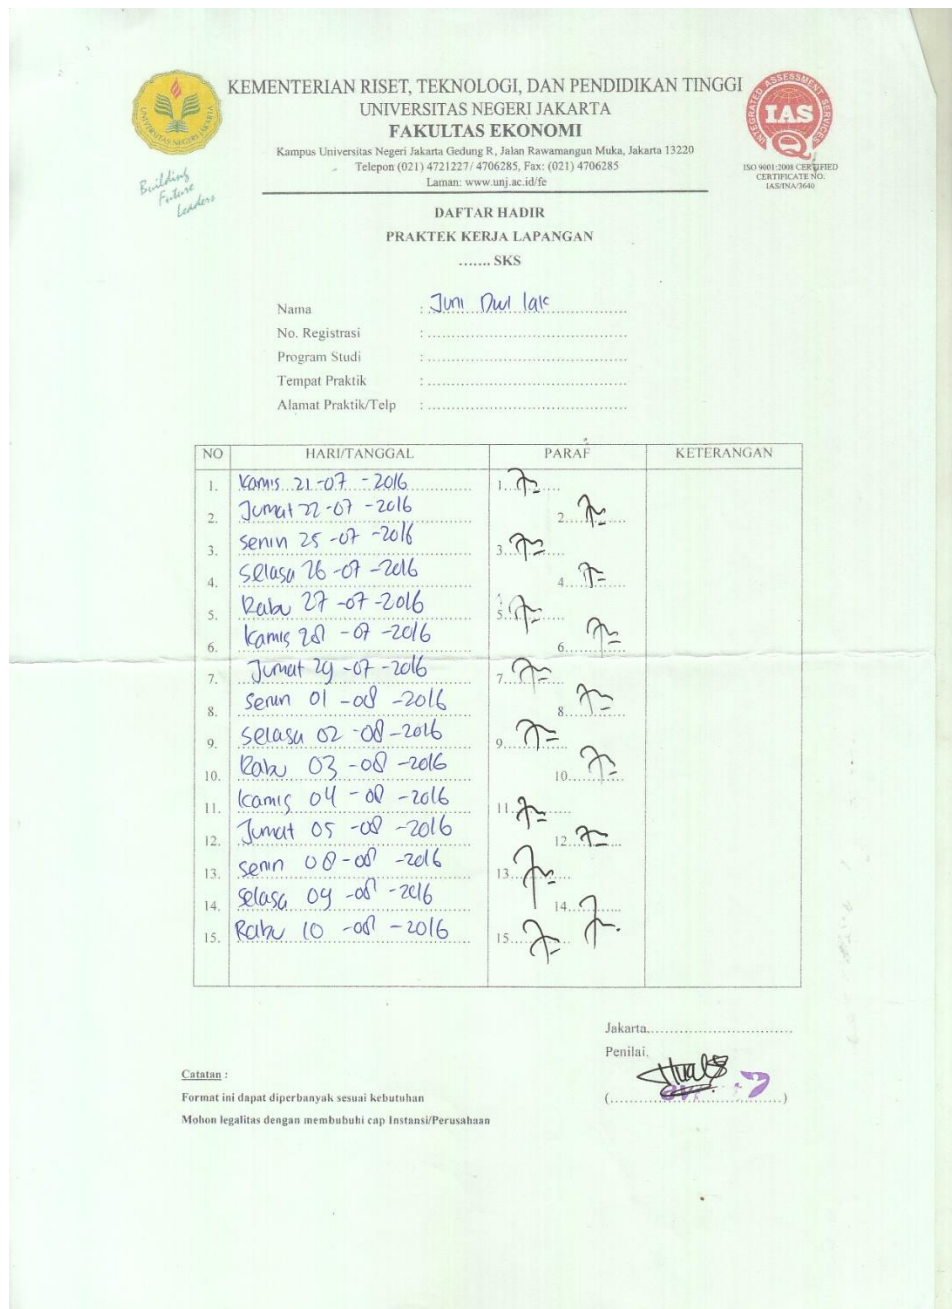 KEMENTERIAN RISET, TEKNOLOGI, DAN PENDIDIKAN TINGGI
UNIVERSITAS NEGERI JAKARTA
FAKULTAS EKONOMI
Kampus Universitas Negeri Jakarta Gedung R, Jalan Rawamangun Muka, Jakarta 13220
Telepon (021) 4721227/ 4706285, Fax: (021) 4706285
Laman: www.unj.ac.id/fe
UNIVERSITAS NEGERI JAKARTA
Building
Future
Leaders
INTEGRATED ASSESSMENT SERVICES
IAS
ISO 9001:2008 CERTIFIED
CERTIFICATE NO.
IAS/INA/3640
DAFTAR HADIR
PRAKTEK KERJA LAPANGAN
....... SKS
Nama : Juni Dwi
No. Registrasi :
Program Studi :
Tempat Praktik :
Alamat Praktik/Telp :
NO HARI/TANGGAL PARAF KETERANGAN
1. Kamis 21-07-2016 1.
2. Jumat 22-07-2016 2.
3. Senin 25-07-2016 3.
4. Selasa 26-07-2016 4.
5. Rabu 27-07-2016 5.
6. Kamis 28-07-2016 6.
7. Jumat 29-07-2016 7.
8. Senin 01-08-2016 8.
9. Selasa 02-08-2016 9.
10. Rabu 03-08-2016 10.
11. Kamis 04-08-2016 11.
12. Jumat 05-08-2016 12.
13. Senin 08-08-2016 13.
14. Selasa 09-08-2016 14.
15. Rabu 10-08-2016 15.
Jakarta
Penilai,
Catatan :
Format ini dapat diperbanyak sesuai kebutuhan
Mohon legalitas dengan membubuhi cap Instansi/Perusahaan